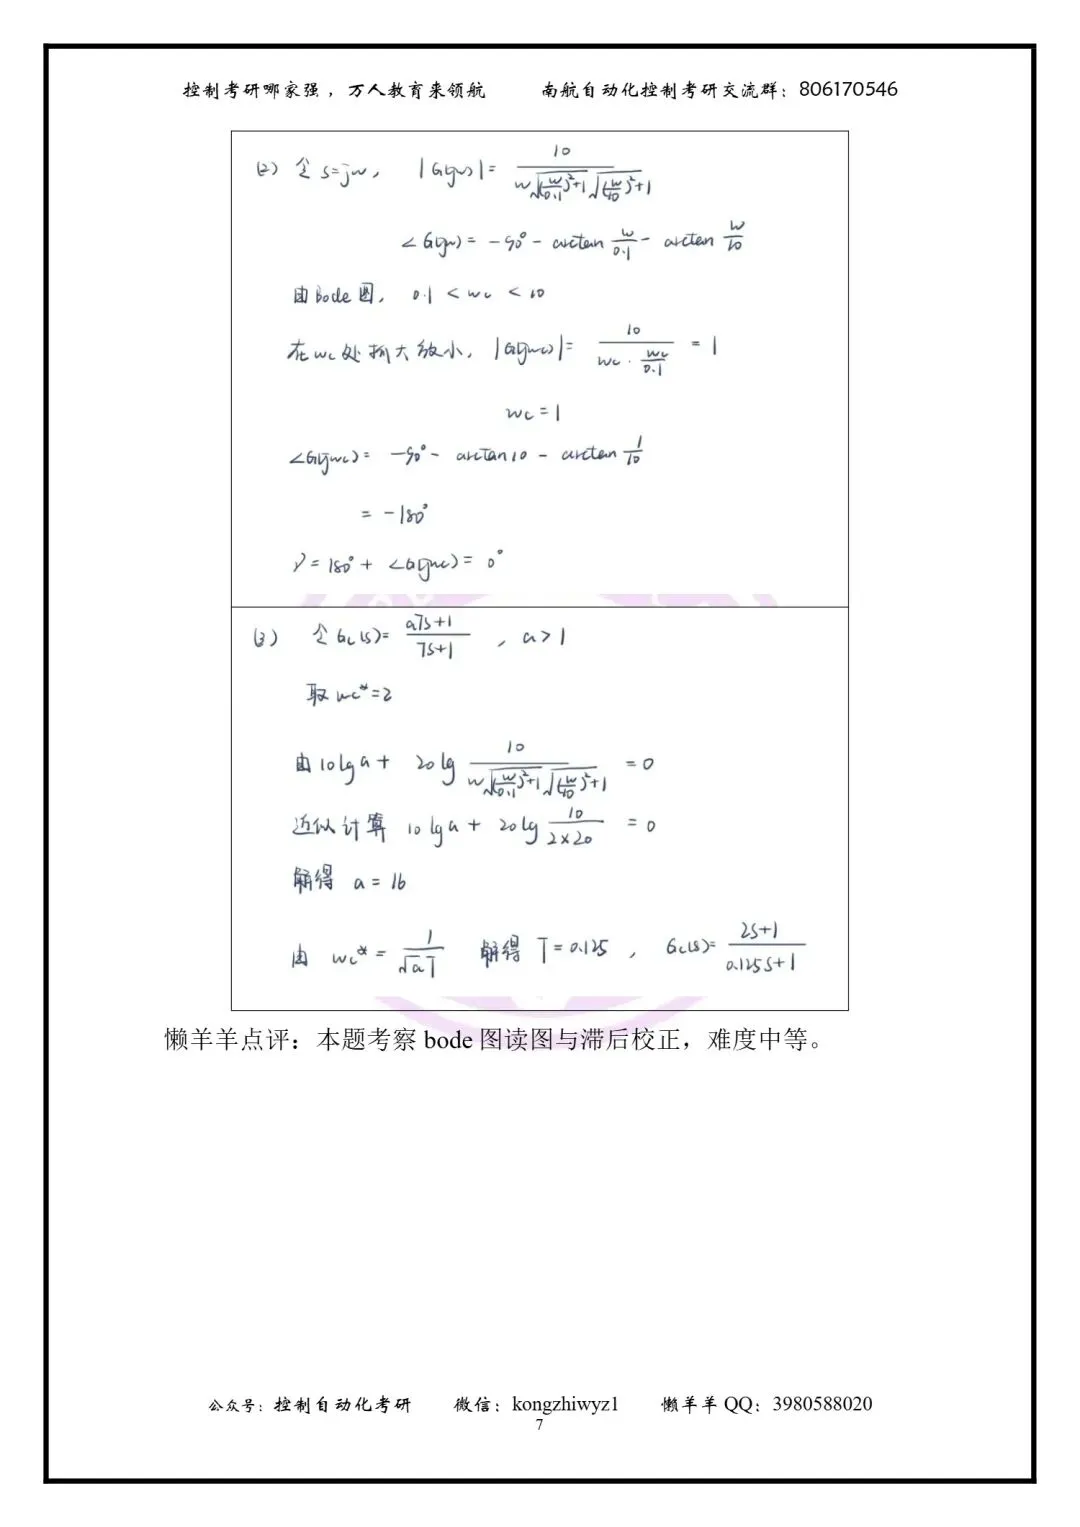 控制考研哪家强，万人教育来领航 南航自动化控制考研交流群：806170546
(2) 令 s=jw, |G(jw)|= 10 / w√((w/0.1)²+1) √((w/10)²+1)
∠G(jw) = -90° - arctan w/0.1 - arctan w/10
由Bode图, 0.1 < wc < 10
在wc处抓大放小, |G(jwc)|= 10 / wc · wc/0.1 = 1
wc = 1
∠G(jwc) = -90° - arctan10 - arctan 1/10
= -180°
γ = 180° + ∠G(jwc) = 0°
(3) 令 Gc(s)= aTs+1 / Ts+1 , a>1
取 wc*=2
由 10lga + 20lg 10 / w√((w/0.1)²+1) √((w/10)²+1) = 0
近似计算 10lga + 20lg 10 / 2×20 = 0
解得 a = 16
由 wc* = 1 / √a T 解得 T=0.125 , Gc(s)= 2s+1 / 0.125s+1
懒羊羊点评：本题考察 bode 图读图与滞后校正，难度中等。
公众号：控制自动化考研 微信：kongzhiwyz1 懒羊羊 QQ：3980588020
7